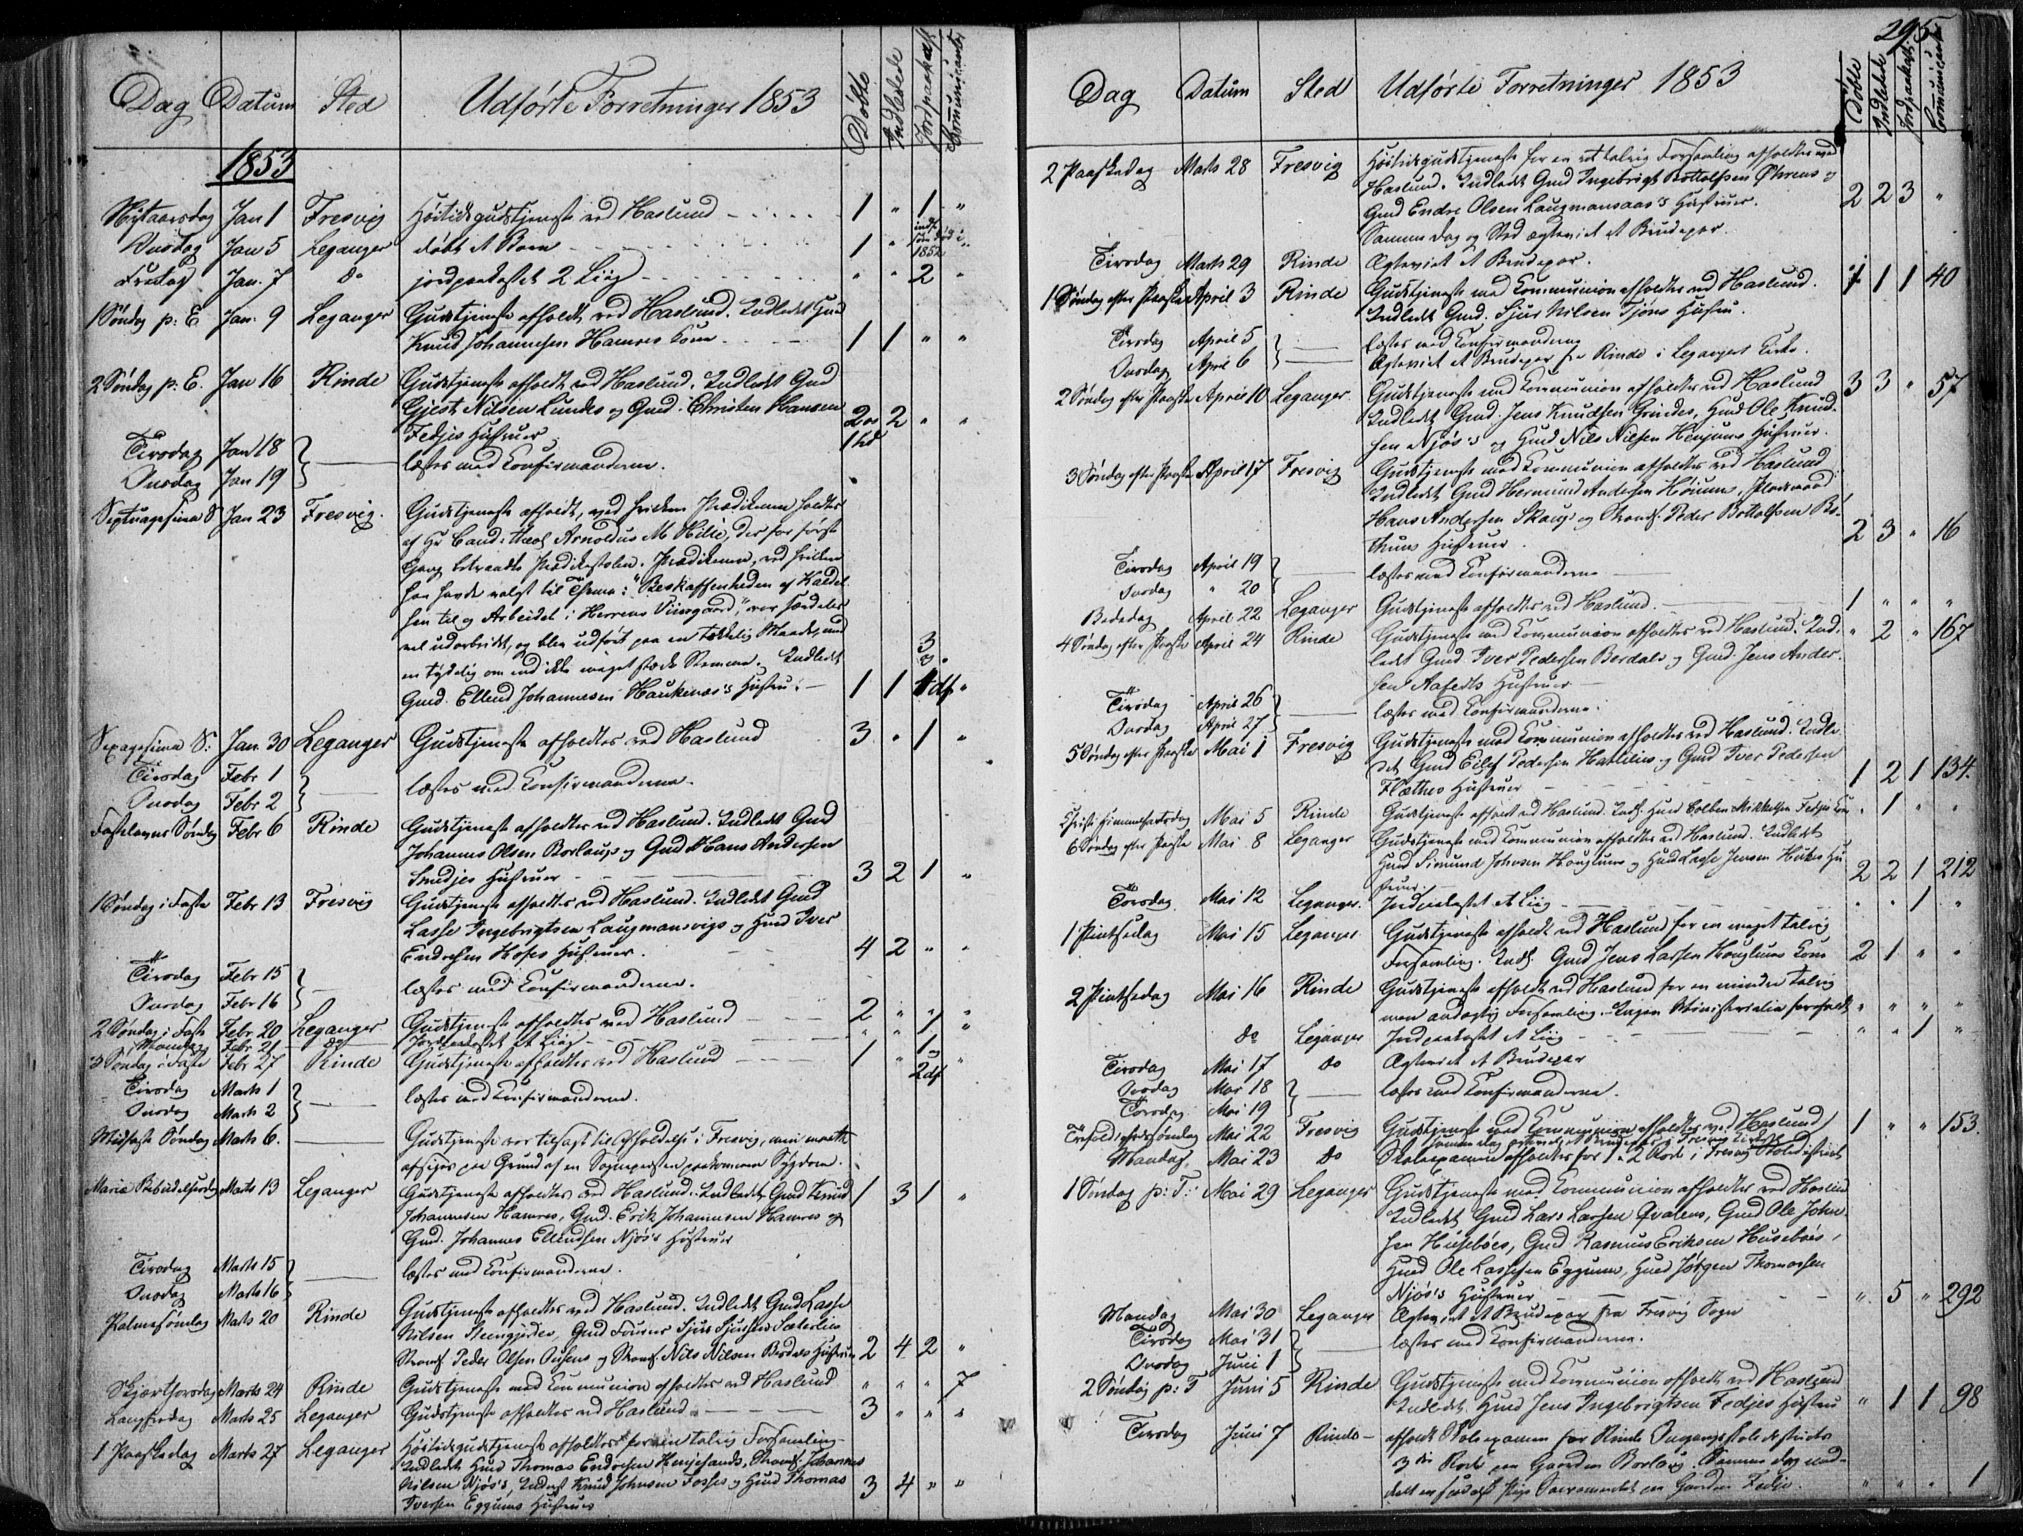 Dag Datum Sted Udførte Forretninger 1853 Døbte Indledede Jordpaakast Communicanter
1853
Nytaarsdag Jan 1 Fresvig Høitidsgudstjeneste ved Haslund 1 " 1 "
Onsdag Jan 5 Leganger døbt et Barn 1 "
1852
Fredag Jan. 7 do jordpaakastet 2 Liig " " 2 "
1 Søndag p: E Jan. 9 Leganger Gudstjeneste afholdt ved Haslund. Indledet Gmd
Knud Johannesen Hamres Kone 1 1 " "
2 Søndag p: E. Jan 16 Rinde Gudstjeneste afholdt ved Haslund. Indledet Gmd
Gjest Nilsen Lunds og Gmd. Christen Hansen
Fedjes Hustruer 2 " "
Tirsdag Jan 18
læstes med Confirmanderne.
Onsdag Jan 19
Septuagesima S Jan 23 Fresvig. Gudstjeneste afholdt, ved hvilken Prædikenen holdtes
af Hr Cand: theol Arnoldus M Hille, der for første
Gang betraadte Prædikestolen. Prædikenen, ved hvilken
han havde valgt til Thema: "Beskaffenheden af Kaldel-
sen til og Arbeidet i Herrens Viingaard", var særdeles
vel udarbeidet, og blev udført paa en tækkelig Maade, med
en tydelig om end ikke meget stærk Stemme. Indledet
Gmd. Ellend Johannesen Haukenæs's Hustru. 1 1 1 df "
Sexagesima S: Jan. 30 Leganger Gudstjeneste afholdtes ved Haslund 3 " 1 "
Tirsdag Febr 1
læstes med Confirmanderne.
Onsdag Febr 2
Fastelavns Søndag Febr 6 Rinde Gudstjeneste afholdtes ved Haslund. Indledet Gmd
Johannes Olsen Borlaugs og Gmd Hans Andersen
Smedjes Hustruer 3 2 1 "
1 Søndag i Faste Febr 13 Fresvig Gudstjeneste afholdtes ved Haslund. Indledet Gmd
Lasse Ingebrigtsen Laugmansvigs og Gmd Iver
Endresen Hoses Hustruer. 4 2 " "
Tirsdag Febr 15
læstes med Confirmanderne.
Onsdag Febr 16
2 Søndag i Faste Febr 20 Leganger Gudstjeneste afholdtes ved Haslund 2 " " "
Mandag Febr 21 do Jordpaakastet et Liig " " 1 "
3 Søndag i Faste Febr 27 Rinde Gudstjeneste afholdtes ved Haslund 1 "
2 df
Tirsdag Marts 1
læstes med Confirmanderne.
Onsdag Marts 2
Midfaste Søndag Marts 6. Gudstjeneste var tilsagt til Afholdelse i Fresvig, men maatte
afsiges paa Grund af en Sognepresten paakommen Sygdom.
Mariæ Bebudelsesdag Marts 13 Leganger Gudstjeneste afholdtes ved Haslund. Indledet Gmd Knud 1 3 1 "
Johannesen Hamres, Gmd. Erik Johannesen Hamres og
Gmd. Johannes Ellendsen Njøs's Hustruer
Tirsdag Marts 15
læstes med Confirmanderne.
Onsdag Marts 16
Palmesøndag Marts 20 Rinde Gudstjeneste afholdtes ved Haslund. Indledet Gmd Lasse
Nilsen Steengjerdes, Sjur Sjursen
Peder Olsen og Nils Nilsen Hustruer 2 4 2 "
Skjærtorsdag Marts 24 Rinde Gudstjeneste med Communion afholdtes ved Haslund " " " 7
Langfredag Marts 25 Leganger Gudstjeneste afholdtes ved Haslund 3 " " "
1 Paaskedag Marts 27 Leganger Høitidsgudstjeneste afholdtes for en talrig Forsamling
Indledet Huusmd Thomas Endresen Henjesands, Strands. Johannes
Nilsen Njøs's, Knud Johnsen Fosses og Huusmd Thomas 3 4 " "
Iversen Eggums Hustruer
295
Dag Datum Sted Udførte Forretninger 1853 Døbte Indledede Jordpaakast Communicanter
2 Paaskedag Marts 28 Fresvig Høitidsgudstjeneste for en ret talrig Forsamling afholdtes ved
Haslund. Indledet Gmd Ingebrigt Bottolfsen Øhrens og
Gmd Endre Olsen Laugmansaas's Hustruer. 2 2 3 "
Samme Dag og Sted ægteviet et Brudepar.
Tirsdag Marts 29 Rinde Ægteviet et Brudepar.
1 Søndag efter Paaske April 3 Rinde Gudstjeneste med Communion afholdtes ved Haslund. 1 1 1 40
Indledet Gmd. Sjur Nilsen Tjøns Hustru.
Tirsdag April 5 læstes med Confirmanderne
Onsdag April 6 Ægteviet et Brudepar fra Rinde i Legangers Kirke.
2 Søndag efter Paaske April 10 Leganger Gudstjeneste med Communion afholdtes ved Haslund 3 3 " 57
Indledet Gmd. Jens Knudsen Grindes, Gmd Ole Knud-
sen Njøs's og Gmd Nils Nilsen Henjums Hustruer.
3 Søndag efter Paaske April 17 Fresvig Gudstjeneste med Communion afholdtes ved Haslund
Indledet Gmd Hermund Andersen Høiums, Pladsmand
Hans Andersen Skaugs og Strands. Peder Bottolfsen Bo-
thuns Hustruer. 2 3 " 16
Tirsdag April 19
læstes med Confirmanderne
Onsdag " 20
Bededag April 22 Leganger Gudstjeneste afholdtes ved Haslund. 1 " " "
4 Søndag efter Paaske April 24 Rinde Gudstjeneste med Communion afholdtes ved Haslund. Ind- " 2 " 167
ledet Gmd Iver Pedersen Berdals og Gmd. Jens Ander-
sen Aafedts Hustruer
Tirsdag April 26
læstes med Confirmanderne.
Onsdag April 27
5 Søndag efter Paaske Mai 1 Fresvig Gudstjeneste med Communion afholdtes ved Haslund. Indle-
det Gmd Eilef Pedersen og Gmd Iver Pedersen
Flæthes Hustruer 1 2 1 134.
Christi Himmelfartsdag Mai 5 Rinde Gudstjeneste afholdt ved Haslund. Indl. Huusmd Colben Mikkelsen Fedjes " 1 " "
6 Søndag efter Paaske Mai 8 Leganger Gudstjeneste med Communion afholdtes ved Haslund. Indledet
Huusmd Simund Johnsen Hougums og Huusmd Lasse Jensen Hu- 2 2 1 212
struer
Torsdag Mai 12 Leganger. Jordpaakastet et Liig " " 1 "
1 Pintsedag Mai 15 Leganger Gudstjeneste afholdt ved Haslund for en meget talrig
Forsamling. Indl. Gmd Jens Larsen Hougums Kone 2 1 " "
2 Pintsedag Mai 16 Rinde Gudstjeneste afholdt ved Haslund for en mindre talrig
men andægtig Forsamling. Ingen Ministerialia forefaldt " " " "
do Leganger Jordpaakastet et Liig " " 1 "
Tirsdag Mai 17 do Ægteviet et Brudepar
Onsdag Mai 18
læstes med Confirmanderne.
Torsdag Mai 19
Trefoldighedssøndag Mai 22 Fresvig Gudstjeneste med Communion afholdtes ved Haslund 1 " " 153.
Samme dag ægteviet et Brudepar i Fresvig Kirke
Mandag Mai 23 do Skoleexamen afholdtes for 1 - 2 Rode i Fresvig Skoledistrict
1 Søndag p: T: Mai 29 Leganger Gudstjeneste med Communion afholdtes ved Haslund
Indledet Gmd Lars Larsen Qvalens, Gmd Ole John-
sen Husebøes, Gmd Rasmus Eriksen Husebøes,
Huusmd Ole Lassesen Eggum, Huusmd Jørgen Thomassen
Njøs's Hustruer " 5 " 292
Mandag Mai 30 Leganger Ægteviet et Brudepar fra Fresvig Sogn
Tirsdag Mai 31
læstes med Confirmanderne.
Onsdag Juni 1
2 Søndag p: T Juni 5 Rinde Gudstjeneste med Communion afholdt ved Haslund
Indledet Huusmd Jens Ingebrigtsen Fedjes Hustru " 1 1 98
Tirsdag Juni 7 Rinde afholdt Skoleexamen for Rinde Omgangsskoledistricts
3die Rode paa Gaarden Borlaug. Samme dag med-
delt en Syg Sacramentet paa Gaarden Fedje. " " " 1